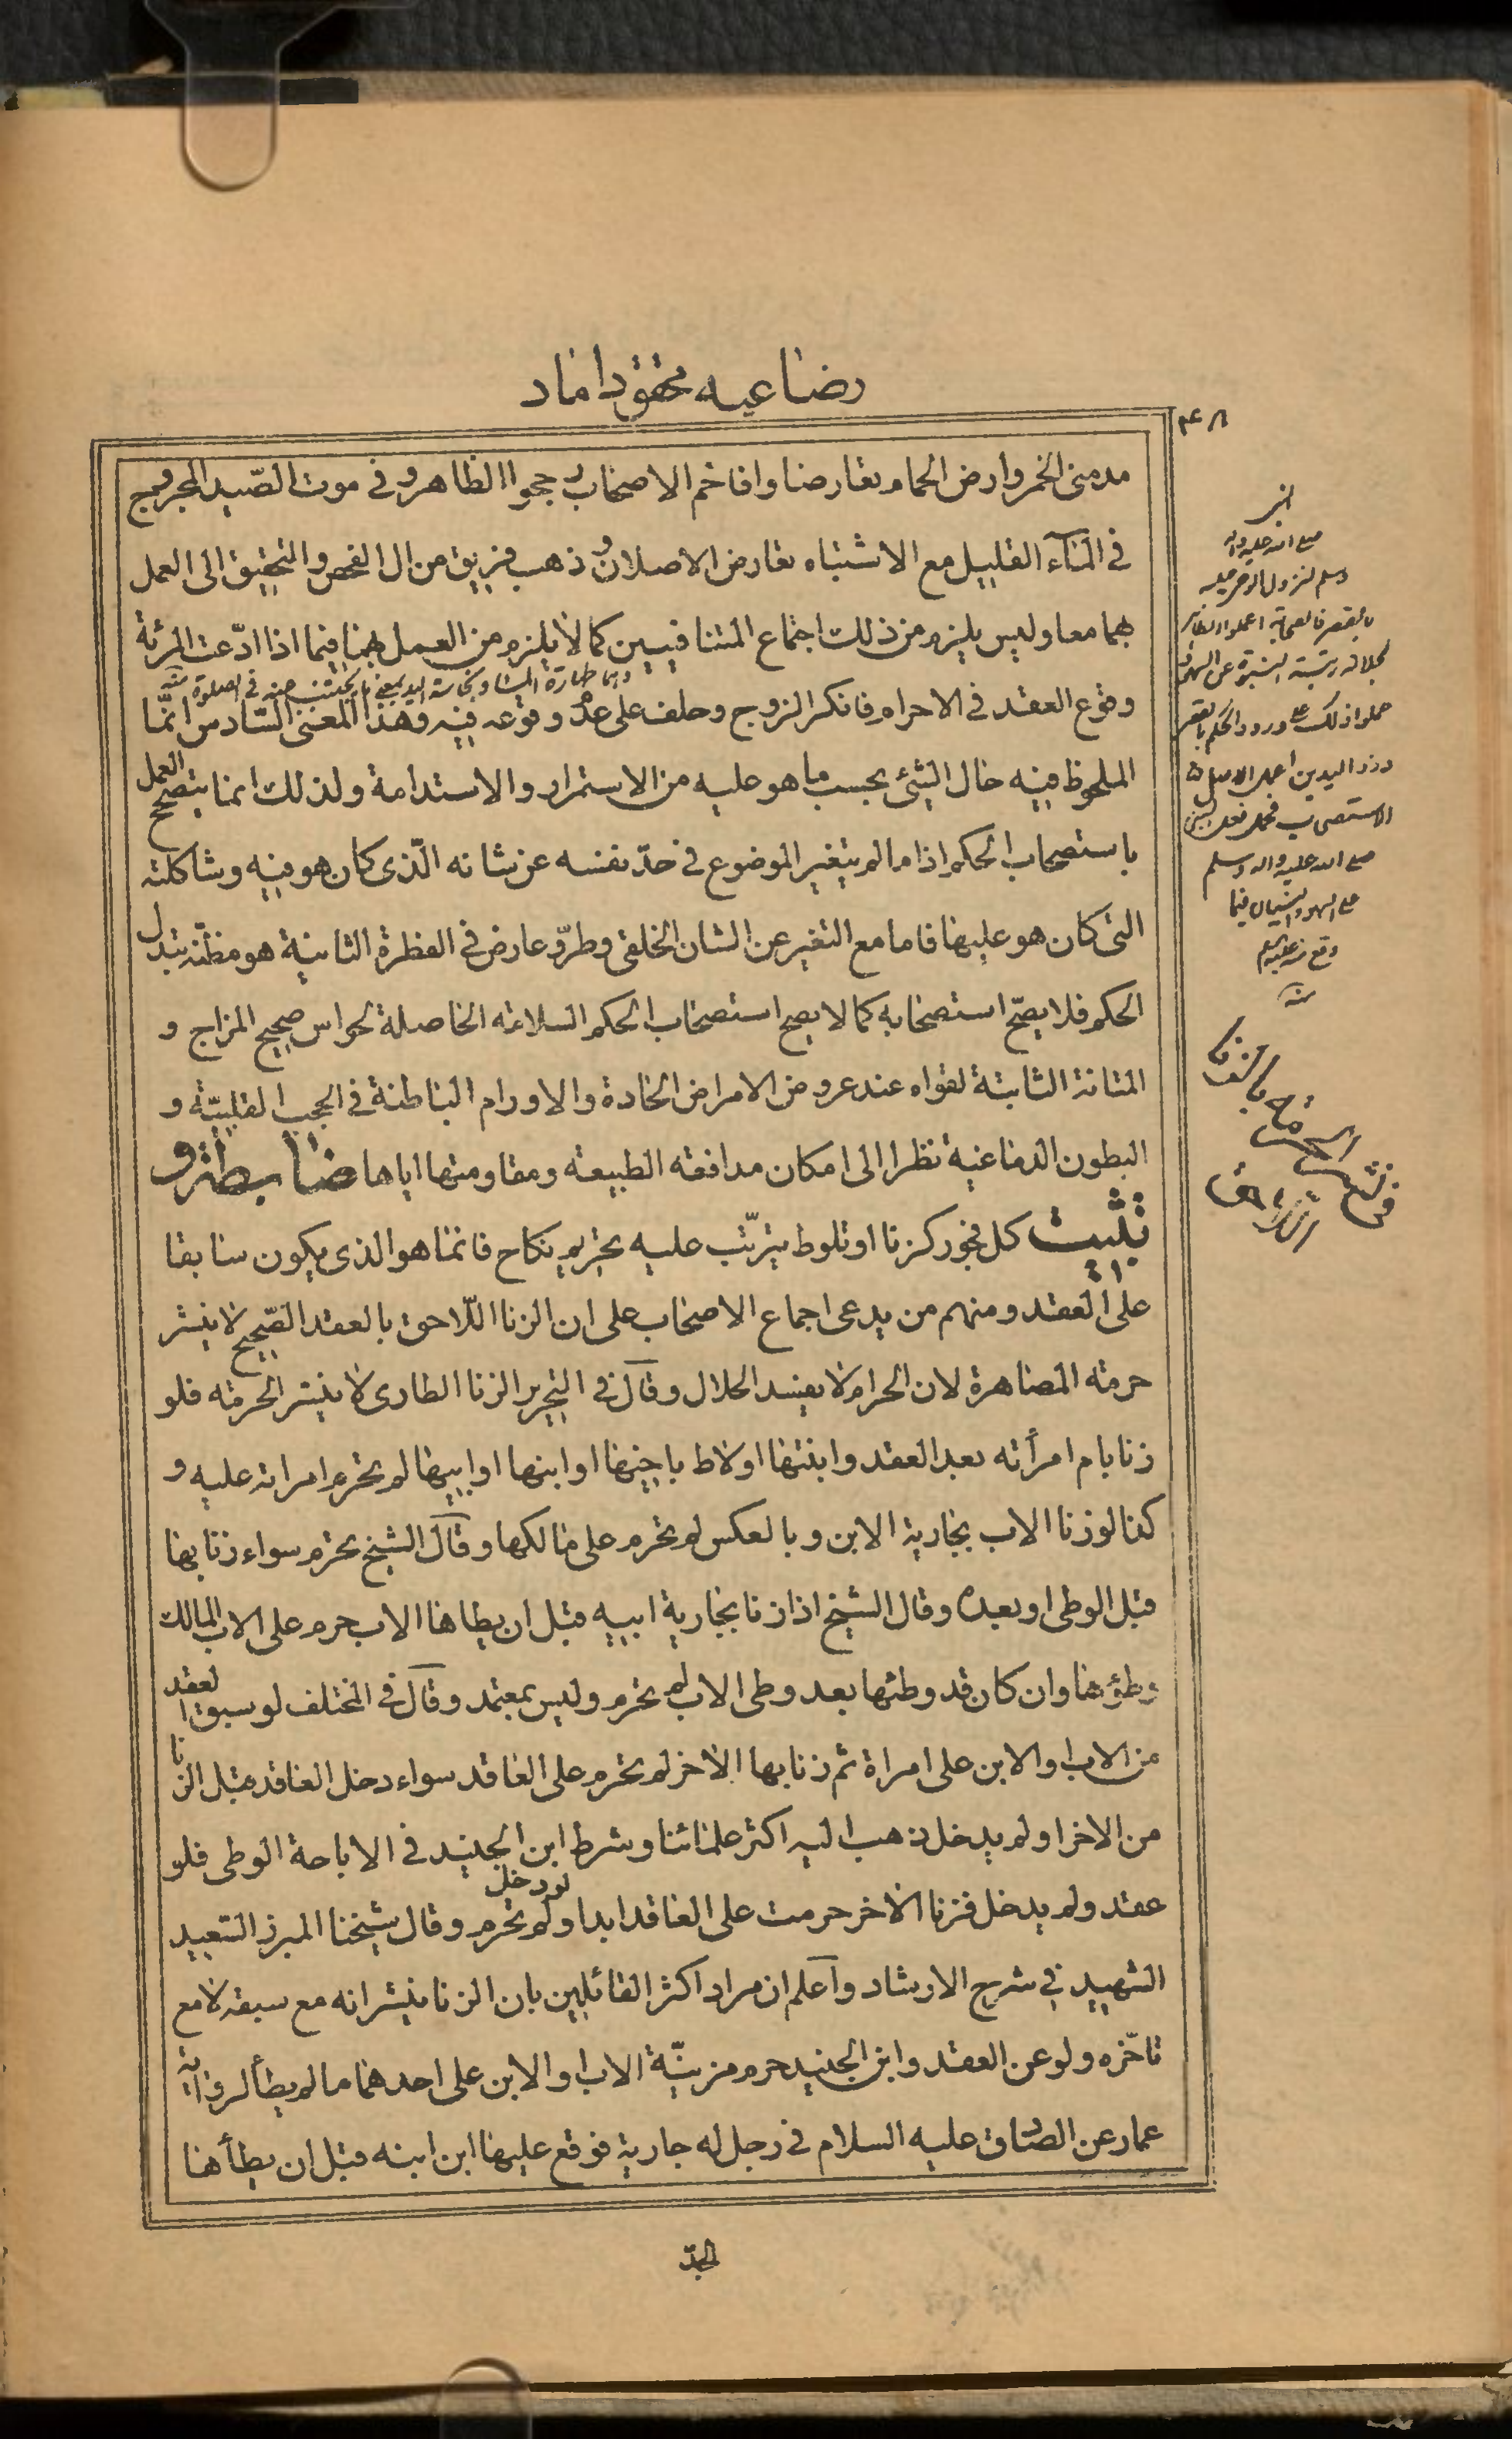 رضاعیه محقق داماد
۴۸
مدمنى الخمر وارض الحمام تعارضا وافاخم الاصحاب رجحوا الظاهر وفى موت الصّيد المجروح
فى المآء القليل مع الاشتباه تعارض الاصلان وذهب فريق من ال الفحص والتحقيق الى العمل
بهما معا وليس يلزم من ذلك اجتماع المتنافيين كما لا يلزم من العمل بهما فيما اذا ادّعت المرئة
وهما طهارة الماء ونجاسة الصيد بمعنى ما يجتنب عنه فى الصلوة منه
وقوع العقد فى الاحرام فانكر الزوج وحلف على عدم وقوعه فيه وهذا المعنى السّادس انّما
الملحوظ فيه حال الشئ بحسب ما هو عليه من الاستمرار والاستدامة ولذلك انما يتصحّح العمل
باستصحاب الحكم اذا ما لم يتغير الموضوع فى حدّ نفسه عن شانه الّذى كان هو فيه وشاكلته
التى كان هو عليها فاما مع التغير عن الشان الخلقى وطروّ عارض فى الفطرة الثانية هو مظنّه تبدل
الحكم فلا يصحّ استصحابه كما لا يصح استصحاب الحكم السلامته الحاصلة لحواس صحيح المزاج و
المتانة الثابتة لقواه عند عروض الامراض الحادة والاورام الباطنة فى الحجب القلبيّة و
البطون الدماغية نظرا الى امكان مدافعة الطبيعة ومقاومتها اياها ضابطة و
تثبيت كل فجور كزنا او تلوط يترتّب عليه تحريم نكاح فانما هو الذى يكون سابقا
على العقد ومنهم من يدعى اجماع الاصحاب على ان الزنا اللّاحق بالعقد الصّحيح لا ينشر
حرمته المصاهرة لان الحرام لا يفسد الحلال وقال فى التحرير الزنا الطارى لا ينشر الحرمته فلو
زنا بام امرأته بعد العقد وابنتها او لاط باخيها او ابنها او ابيها لم يحرم امراته عليه و
كذا لو زنا الاب بجارية الابن وبالعكس لم تحرم على مالكها وقال الشيخ تحرم سواء زنا بها
قبل الوطى او بعده وقال الشيخ اذا زنا بجارية ابيه قبل ان يطاها الاب حرم على الاب المالك
وطؤها وان كان قد وطئها بعد وطى الاب لم تحرم وليس بمعتمد وقال فى المختلف لو سبق العقد
من الاب او الابن على امراة ثم زنا بها الاخر لم تحرم على العاقد سواء دخل العاقد قبل الزنا
من الاخر او لم يدخل ذهب اليه اكثر علمائنا وشرط ابن الجنيد فى الاباحة الوطى فلو
عقد ولم يدخل فزنا الاخر حرمت على العاقد ابدا ولو دخل لم تحرم وقال شيخنا المبرز السّعيد
الشهيد فى شرح الارشاد وآعلم ان مراد اكثر القائلين بان الزنا ينشر انه مع سبقه لا مع
تاخّره ولو عن العقد وابن الجنيد حرم مزنيّة الاب او الابن على احدهما ما لم يطأ لرواية
عمار عن الصادق عليه السلام فى رجل له جارية فوقع عليها ابن ابنه قبل ان يطأها
الجدّ
صلى الله عليه واله
وسلم لنزول الوحى عليه
بالقصر فالصحابة اعملوا الظاهر
حملوا ذلك على ورود الحكم بالقصر
وذو اليدين اعمل الاصل
الاستصحاب فحمل فعل النبى
صلى الله عليه واله وسلم
على السهو والنسيان فيما
وقع منه
منه